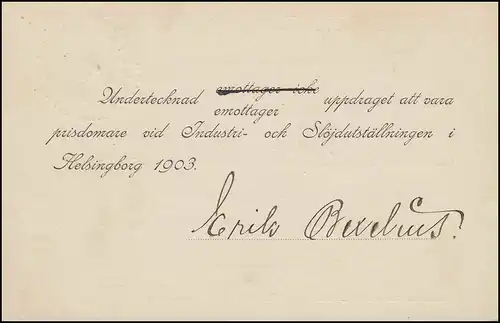 emottager icke
Undertecknad emottager uppdraget att vara
prisdomare vid Industri- och Slöjdutställningen i
Helsingborg 1903.
Erik Bexelius.